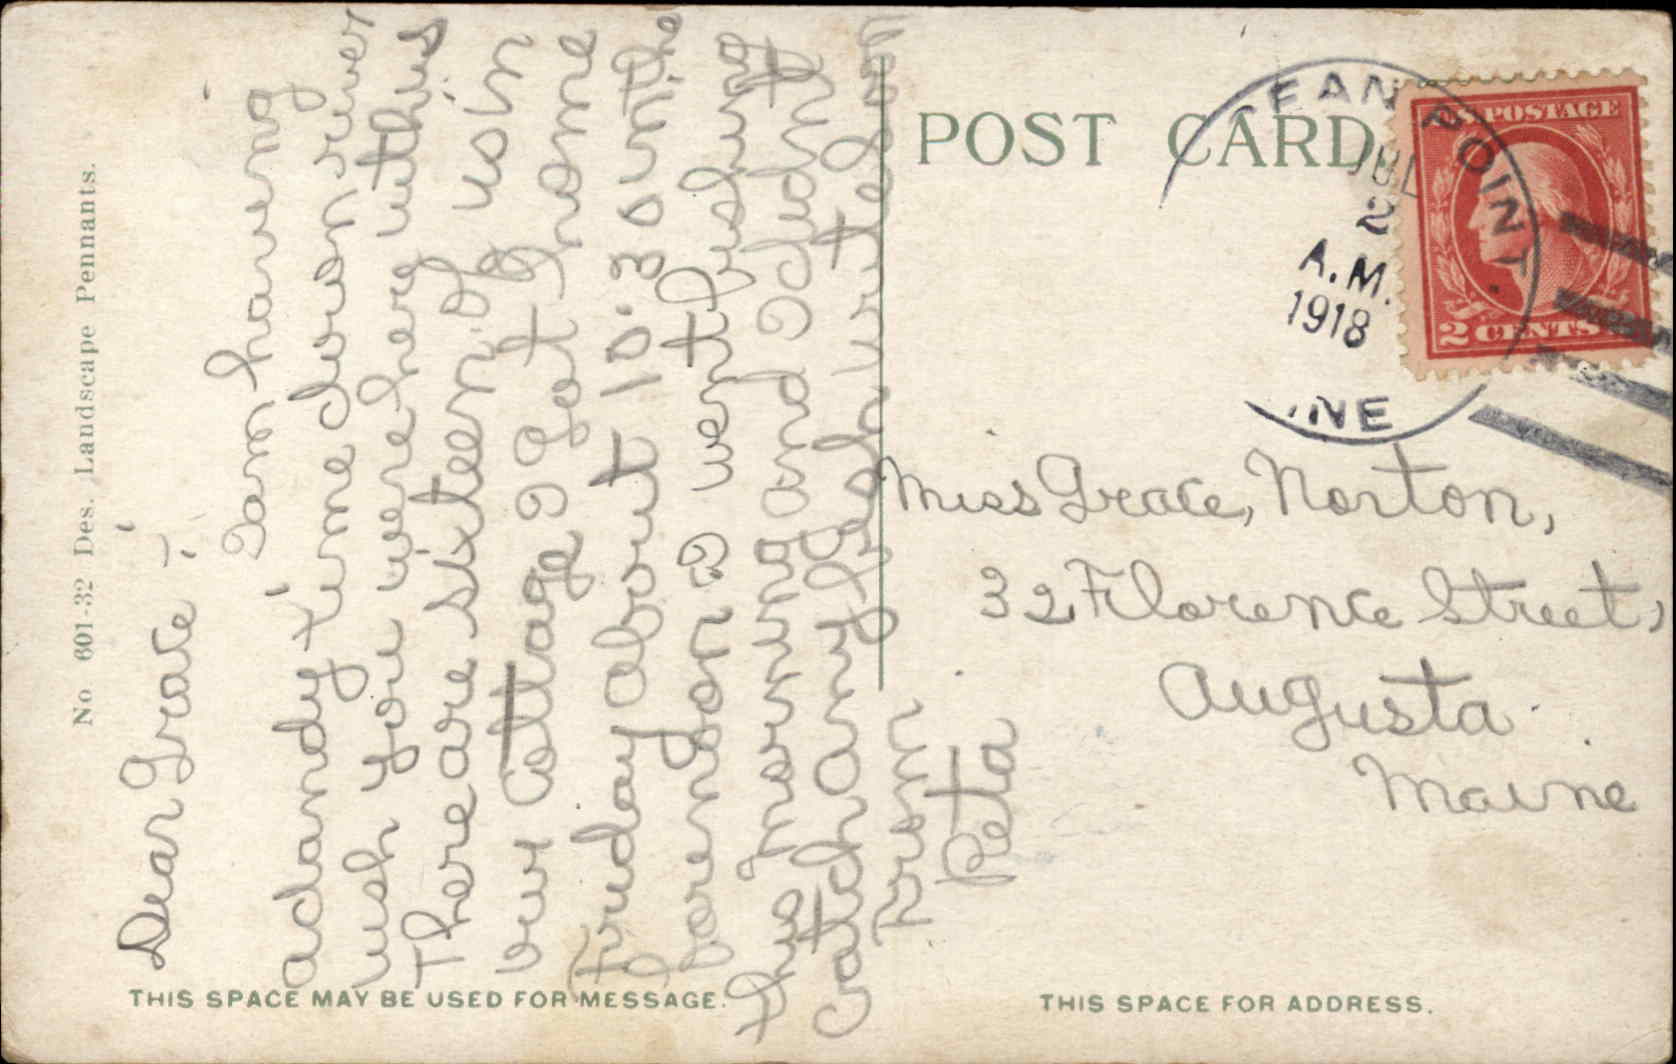 No 601-32 Des. Landscape Pennants.
Dear Grace :
I am having
a dandy time down river
wish you were here with us
There are sixteen of us in
our cottage I get home
Friday about 10:30 in the
forenoon I went fishing
this morning and I didnt
catch any fish write soon
From
Peta
THIS SPACE MAY BE USED FOR MESSAGE.
POST CARD
EAN POINT.
JUL
2
A.M.
1918
INE
U.S. POSTAGE
2 CENTS 2
Miss Grace, Norton,
32 Florence Street,
Augusta
Maine
THIS SPACE FOR ADDRESS.